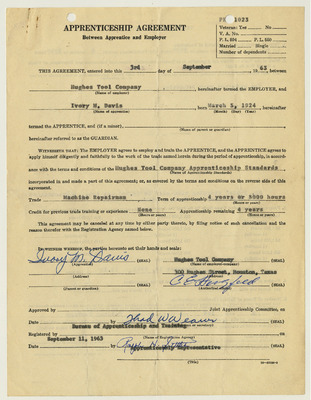 PE 1023
APPRENTICESHIP AGREEMENT
Between Apprentice and Employer
Veteran: Yes No
V. A. No.
P. L. 894 P. L. 550
Married Single
Number of dependents
THIS AGREEMENT, entered into this 3rd day of September, 1963, between
Hughes Tool Company hereinafter termed the EMPLOYER, and
(Name of employer)
Ivory M. Davis, born March 5, 1924, hereinafter
(Name of apprentice) (Month) (Day) (Year)
termed the APPRENTICE, and (if a minor),
(Name of parent or guardian)
hereinafter termed the GUARDIAN.
WITNESSETH THAT: The EMPLOYER agrees to employ and train the APPRENTICE, and the APPRENTICE agrees to
apply himself diligently and faithfully to the work of the trade named herein during the period of apprenticeship, in accord-
ance with the terms and conditions of the Hughes Tool Company Apprenticeship Standards,
(Name of Apprenticeship Standards)
incorporated in and made a part of this agreement; or, as entered by the terms and conditions on the reverse side of this
agreement.
Trade Machine Repairman Term of apprenticeship 4 years or 8000 hours
(Hours or years)
Credit for previous trade training or experience None Apprenticeship remaining 4 years
(Hours or years) (Hours or years)
This agreement may be canceled at any time by either party thereto, by filing notice of such cancellation and the
reason therefor with the Registration Agency named below.
IN WITNESS WHEREOF, the parties hereunto set their hands and seals:
Ivory M. Davis (SEAL) Hughes Tool Company (SEAL)
(Apprentice) (Name of employer)
300 Hughes Street, Houston, Texas
(Address) (Address)
(SEAL) (SEAL)
Approved by Joint Apprenticeship Committee, on
Date by Thad W Weaver (SEAL)
Bureau of Apprenticeship and Training
Registered by (Name of Registration Agency)
September 11, 1963
Date by (SEAL)
Apprenticeship Representative
(Title)